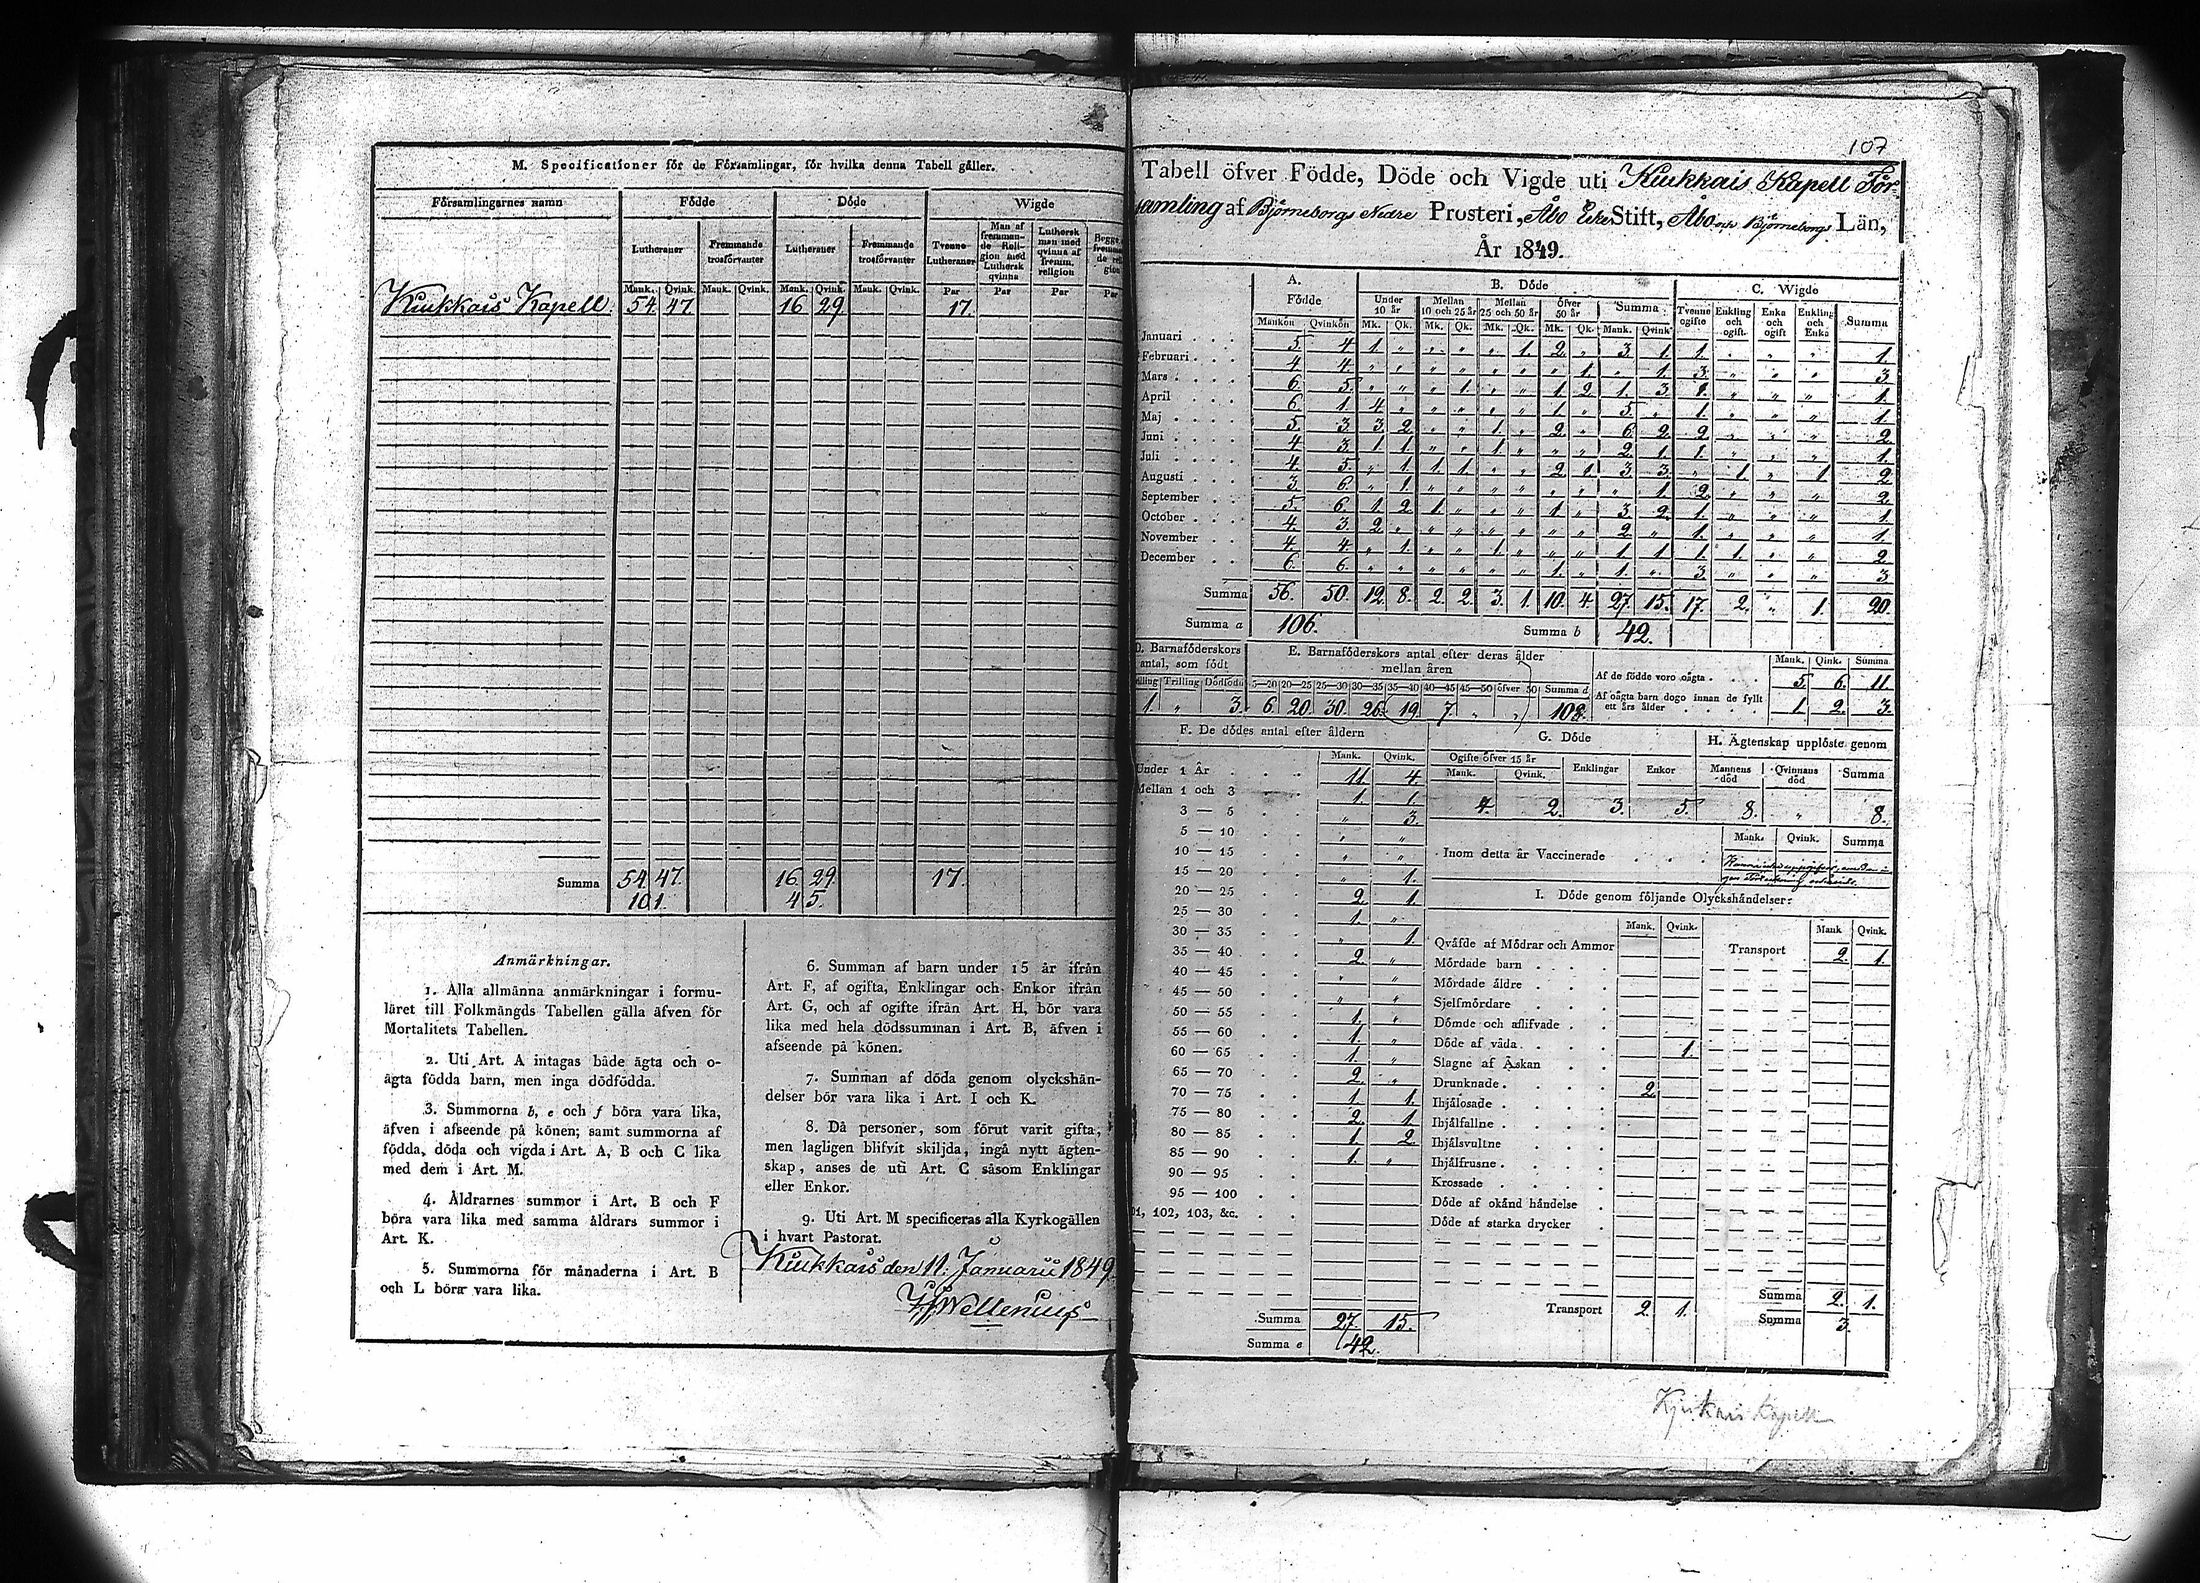 M. Specificationer för de Församlingar, för hvilka denna Tabell gäller.
Församlingarnes namn Födde Döde Wigde
Lutheraner Fremmande trosförvanter Lutheraner Fremmande trosförvanter Tvenne Lutheraner Man af fremmande Religion med Luthersk qvinna Luthersk man med qvinna af fremm. religion
Mank. Qvink. Mank. Qvink. Mank. Qvink. Mank. Qvink. Par Par Par Par
Kiukkais Kapell 54. 47. 16 29. 17.
Summa 54. 47. 16 29. 17.
101. 45.
Anmärkningar.
1. Alla allmänna anmärkningar i formu-
läret till Folkmängds Tabellen gälla äfven för
Mortalitets Tabellen.
2. Uti Art. A intagas både ägta och o-
ägta födda barn, men inga dödfödda.
3. Summorna b, e och f böra vara lika,
äfven i afseende på könen; samt summorna af
födda, döda och vigda i Art. A, B och C lika
med dem i Art. M.
4. Åldrarnes summor i Art. B och F
böra vara lika med samma åldrars summor i
Art. K.
5. Summorna för månaderna i Art. B
och L böra vara lika.
6. Summan af barn under 15 år ifrån
Art. F, af ogifta, Enklingar och Enkor ifrån
Art. G, och af ogifte ifrån Art. H, bör vara
lika med hela dödssumman i Art. B, äfven i
afseende på könen.
7. Summan af döda genom olyckshän-
delser bör vara lika i Art. I och K.
8. Då personer, som förut varit gifta,
men lagligen blifvit skiljda, ingå nytt ägten-
skap, anses de uti Art. C såsom Enklingar
eller Enkor.
9. Uti Art. M specificeras alla Kyrkogällen
i hvart Pastorat.
Kiukkais den 11. Januarii 1849
107
Tabell öfver Födde, Döde och Vigde uti Kiukkais Kapell För-
samling af Björneborgs Nedre Prosteri, Åbo Erke Stift, Åbo och Björneborgs Län,
År 1849.
A. B. Döde C. Wigde
Födde Under 10 år Mellan 10 och 25 år Mellan 25 och 50 år öfver 50 år Summa Tvenne ogifte Enkling och ogift Enka och ogift Enkling och Enka Summa
Mankön Qvinkön Mk. Qk. Mk. Qk. Mk. Qk. Mk. Qk. Mank. Qvink.
Januari 5. 4 1 „ „ „ „ 1. 2. „ 3. 1. 1. „ „ „ 1.
Februari 4 4. „ „ „ „ „ „ „ 1. „ 1. 3. „ „ „ 3.
Mars 6 5. „ „ „ 1. „ „ 1. 2. 1. 3. 1. „ „ „ 1.
April 6. 1. 4 „ „ „ „ „ 1. „ 5. „ 1. „ „ „ 1.
Maj 5. 3. 3. 2. „ „ 1. „ 2. „ 6. 2. 2. „ „ „ 2.
Juni 4. 3. 1 1. „ „ 1. „ „ „ 2. 1. 1. „ „ „ 1.
Juli 4. 5. „ 1. 1. 1. „ „ 2. 1. 3. 3. „ 1. „ 1. 2
Augusti 3. 6. „ 1. „ „ „ „ „ „ „ 1. 2. „ „ „ 2.
September 5. 6. 1. 2. 1. „ „ „ 1. „ 3. 2. 1. „ „ „ 1.
October 4. 3. 2. „ „ „ „ „ „ „ 2. „ 1. „ „ „ 1.
November 4. 4. „ 1. „ „ 1. „ „ „ 1. 1. 1. 1. „ „ 2
December 6. 6. „ „ „ „ „ „ 1. „ 1. „ 3. „ „ „ 3.
Summa 56. 50. 12. 8. 2. 2. 3. 1. 10. 4. 27. 15. 17. 2. „ 1. 20.
Summa a 106. Summa b 42.
D. Barnaföderskors antal, som födt
Trilling Dödfödt
1. „ 3.
E. Barnaföderskors antal efter deras ålder
mellan åren
20—25 25—30 30—35 35—40 40—45 45—50 öfver 50 Summa d
6. 20. 30. 26. 19. 7. „ „ 108.
Mank. Qink. Summa
Af de födde voro oägta 5. 6. 11.
Af oägta barn dogo innan de fyllt ett års ålder 1. 2. 3.
F. De dödes antal efter åldern
Mank. Qvink.
Under 1 År 11. 4.
Mellan 1 och 3 1. 1.
3 — 5 „ 3.
5 — 10 „ „
10 — 15 „ „
15 — 20 „ 1.
20 — 25 2. 1.
25 — 30 1. „
30 — 35 „ 1.
35 — 40 2. „
40 — 45 „ „
45 — 50 „ „
50 — 55 1. „
55 — 60 1. „
60 — 65 1. „
65 — 70 2. „
70 — 75 1. 1.
75 — 80 2. 1.
80 — 85 1. 2.
85 — 90 1. „
90 — 95
95 — 100
102, 103, &c.
Summa 27. 15.
Summa e 42.
G. Döde
Ogifte öfver 15 år Enklingar Enkor
Mank. Qvink.
4. 2. 3. 5.
H. Ägtenskap upplöste genom
Mannens död Qvinnans död Summa
8. „ 8.
Mank. Qvink. Summa
Inom detta år Vaccinerade
I. Döde genom följande Olyckshändelser:
Mank. Qvink. Mank Qvink.
Qväfde af Mödrar och Ammor Transport 2. 1.
Mördade barn
Mördade äldre
Sjelfmördare
Dömde och aflifvade
Döde af våda 1.
Slagne af Åskan
Drunknade 2.
Ihjälosade
Ihjälfallne
Ihjälsvultne
Ihjälfrusne
Krossade
Döde af okänd händelse
Döde af starka drycker
Transport 2. 1. Summa 2. 1.
Summa 3.
Kjukais Kapell